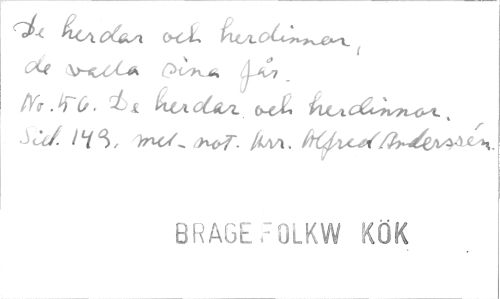 De herdar och herdinnor,
de valla sina får.
No. 56. De herdar och herdinnor.
Sid. 149. mel-not. Arr. Alfred Anderssén.
BRAGE FOLKW KÖK